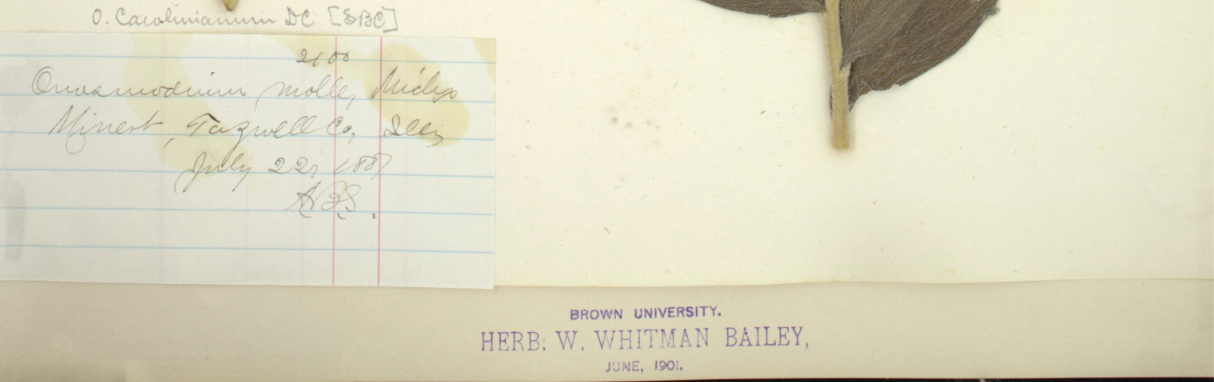 O. Carolinianum DC [SBC]
2100
Onosmodium molle, Michx
Minert, Tazwell Co, Ills
July 22, 1887
A.B.S.
BROWN UNIVERSITY.
HERB. W. WHITMAN BAILEY,
JUNE, 1901.